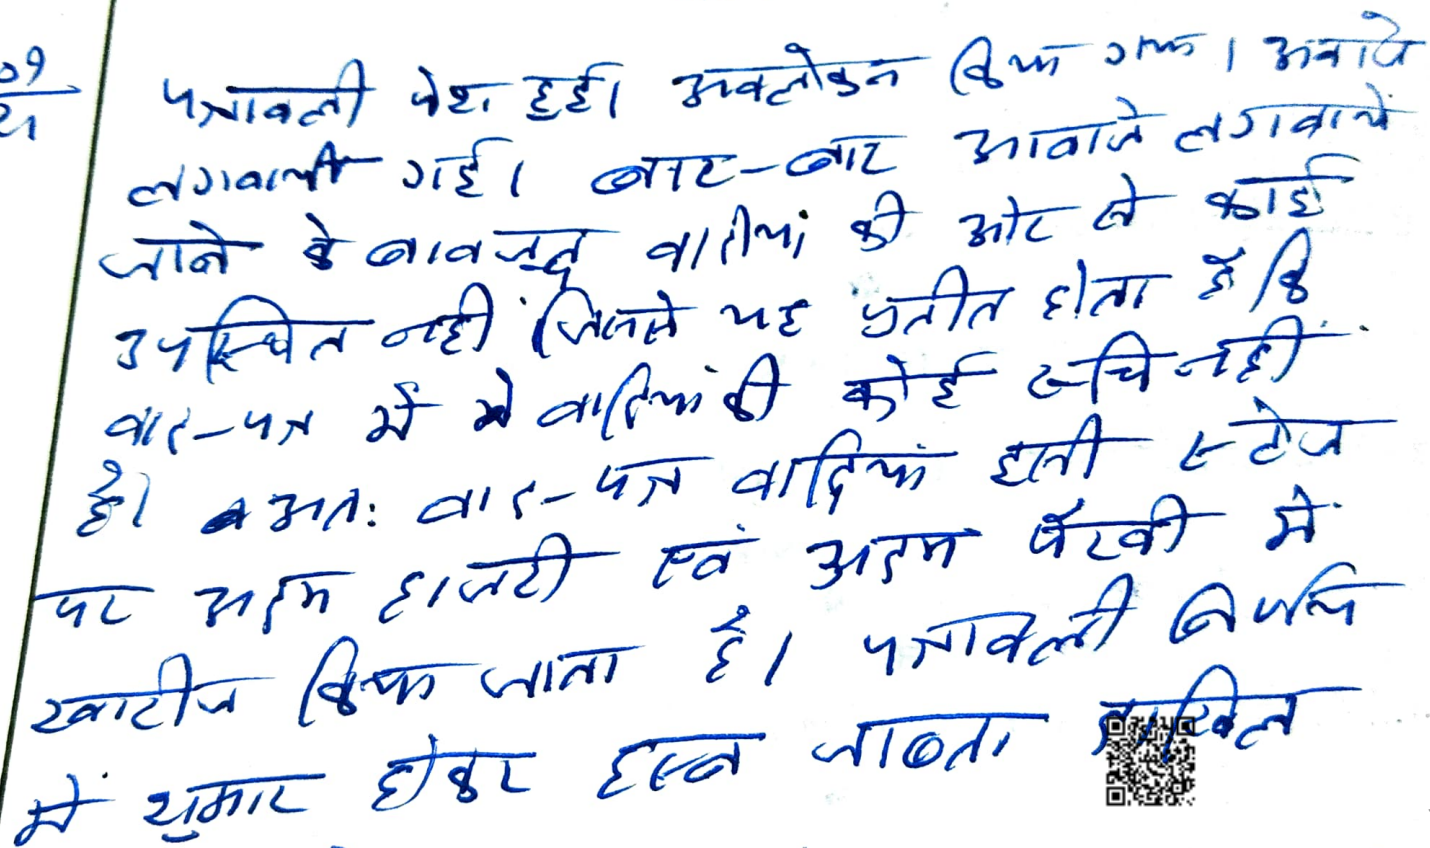 09
21
पत्रावली पेश हुई। अवलोकन किया गया। आवाजे
लगवायी गई। बार-बार आवाजे लगवाये
जाने के बावजूद वादीयां की ओर से कोई
उपस्थित नहीं जिससे यह प्रतीत होता है कि
वाद-पत्र में वादियां की कोई रूचि नहीं
है। अतः वाद-पत्र वादियां इसी स्टेज
पर अदम हाजरी एवं अदम पैरवी में
खारीज किया जाता है। पत्रावली निर्णय
में शुमार होकर हस्ब जाब्ता दाखिल